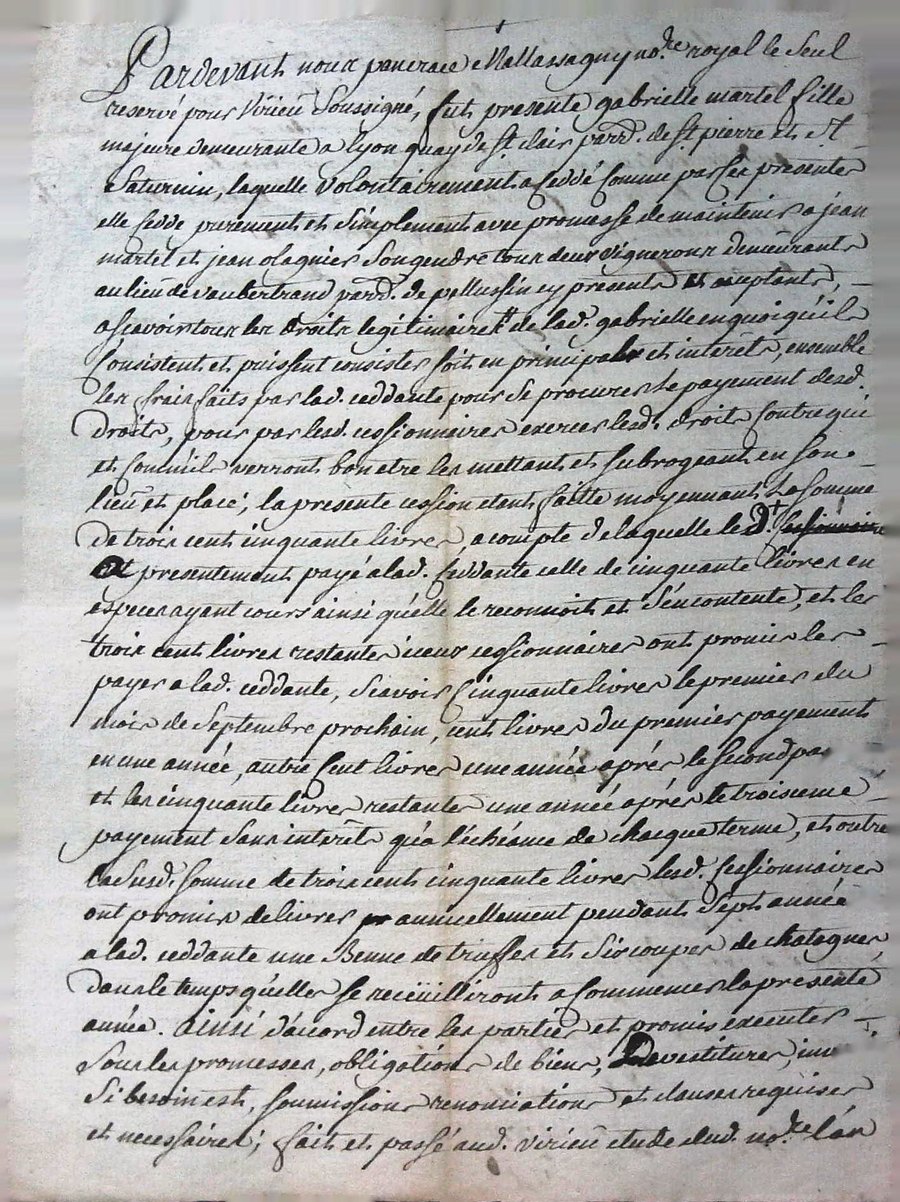 Pardevant nous pancrace Mallassagny no.re royal le seul
reservé pour Virieu soussigné, fut presente gabrielle martel fille
majeure demeurante a lyon quay de St. clair parr. de St. pierre et St.
Saturnin, laquelle volontairement a ceddé comme par ces presentes
elle cedde purement et simplement avec promesse de maintenir a jean
martel et jean olagnier son gendre tous deux vignerons demeurants
au lieu de vaubertrand parr. de pellussin cy presents et acceptants,
a scavoir tous les droits legitimaires de lad. gabrielle en quoi qu'ils
consistent et puissent consister soit en principal et interêt, ensemble
les frais faits par lad. ceddante pour se procurer le payement desd.
droits, pour par lesd. cessionnaires exercer lesd. droits contre qui
et comm'ils verront bon etre les mettant et subrogeant en son
lieu et place, la presente cession etant faitte moyennant la somme
de trois cent cinquante livres, a compte de laquelle led.t
a presentement payé a lad. ceddante celle de cinquante livres en
especes ayant cours ainsi qu'elle le reconnoit et s'en contente, et les
trois cent livres restantes iceux cessionnaires ont promis les
payer a lad. ceddante, scavoir cinquante livres le premier du
mois de septembre prochain, cent livres du premier payement
en une année, autre cent livres une année aprés le second pa
et les cinquante livres restante une année aprés le troisieme
payement sans interêt qu'a l'echéance de chacque terme, et outre
la susd. somme de trois cent cinquante livres lesd. cessionnaires
ont promis de livrer annuellement pendant sept année
a lad. ceddante une Benne de truffes et six coupes de chatagnes,
dans le temps qu'elles se recuilliront a commencer la presente
année. ainsi d'acord entre les parties et promis executer
sous les promesses, obligations de biens, Devestitures, inv
si besoin est, soumissions renonciations et clauses requises
et necessaires; fait et passé aud. virieu etude dud. no.re l'an